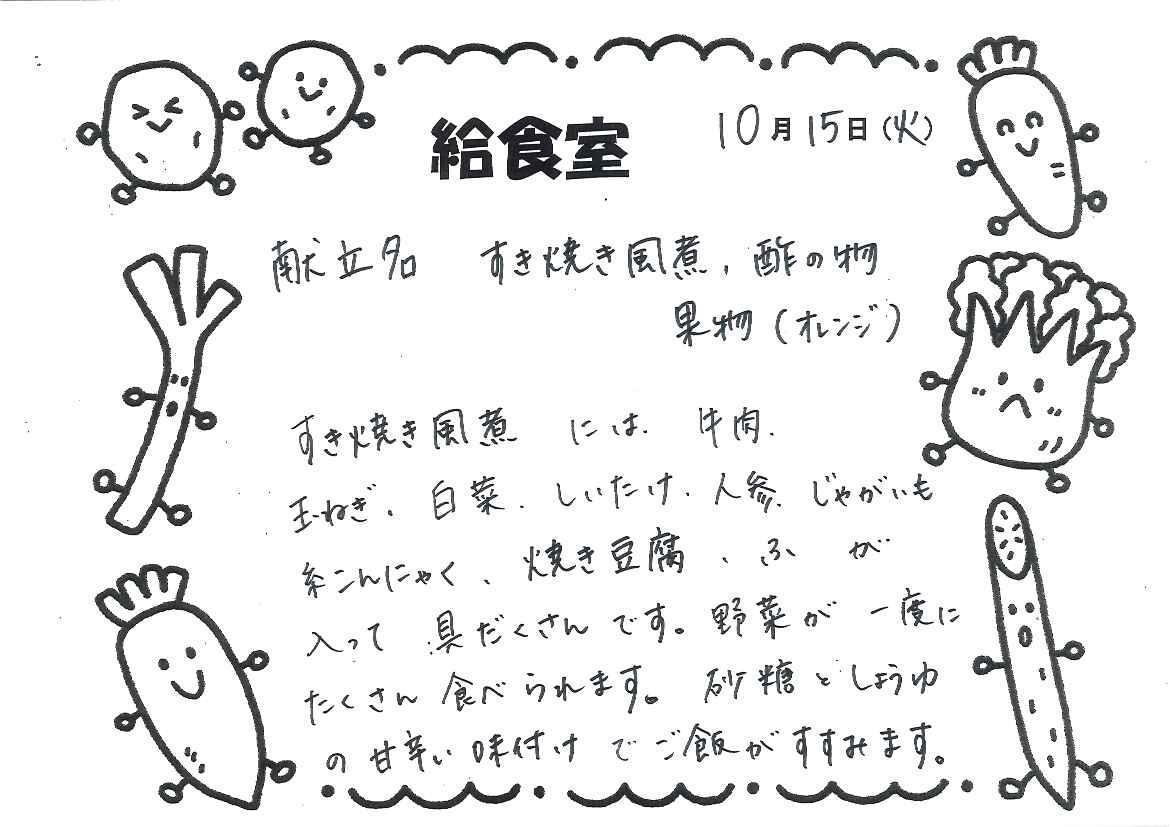 給食室
10月15日(火)
献立名 すき焼き風煮、酢の物
果物(オレンジ)
すき焼き風煮 には、牛肉、
玉ねぎ、白菜、しいたけ、人参、じゃがいも
糸こんにゃく、焼き豆腐、ふ が
入って 具だくさんです。野菜が 一度に
たくさん 食べられます。砂糖としょうゆ
の甘辛い味付けでご飯がすすみます。